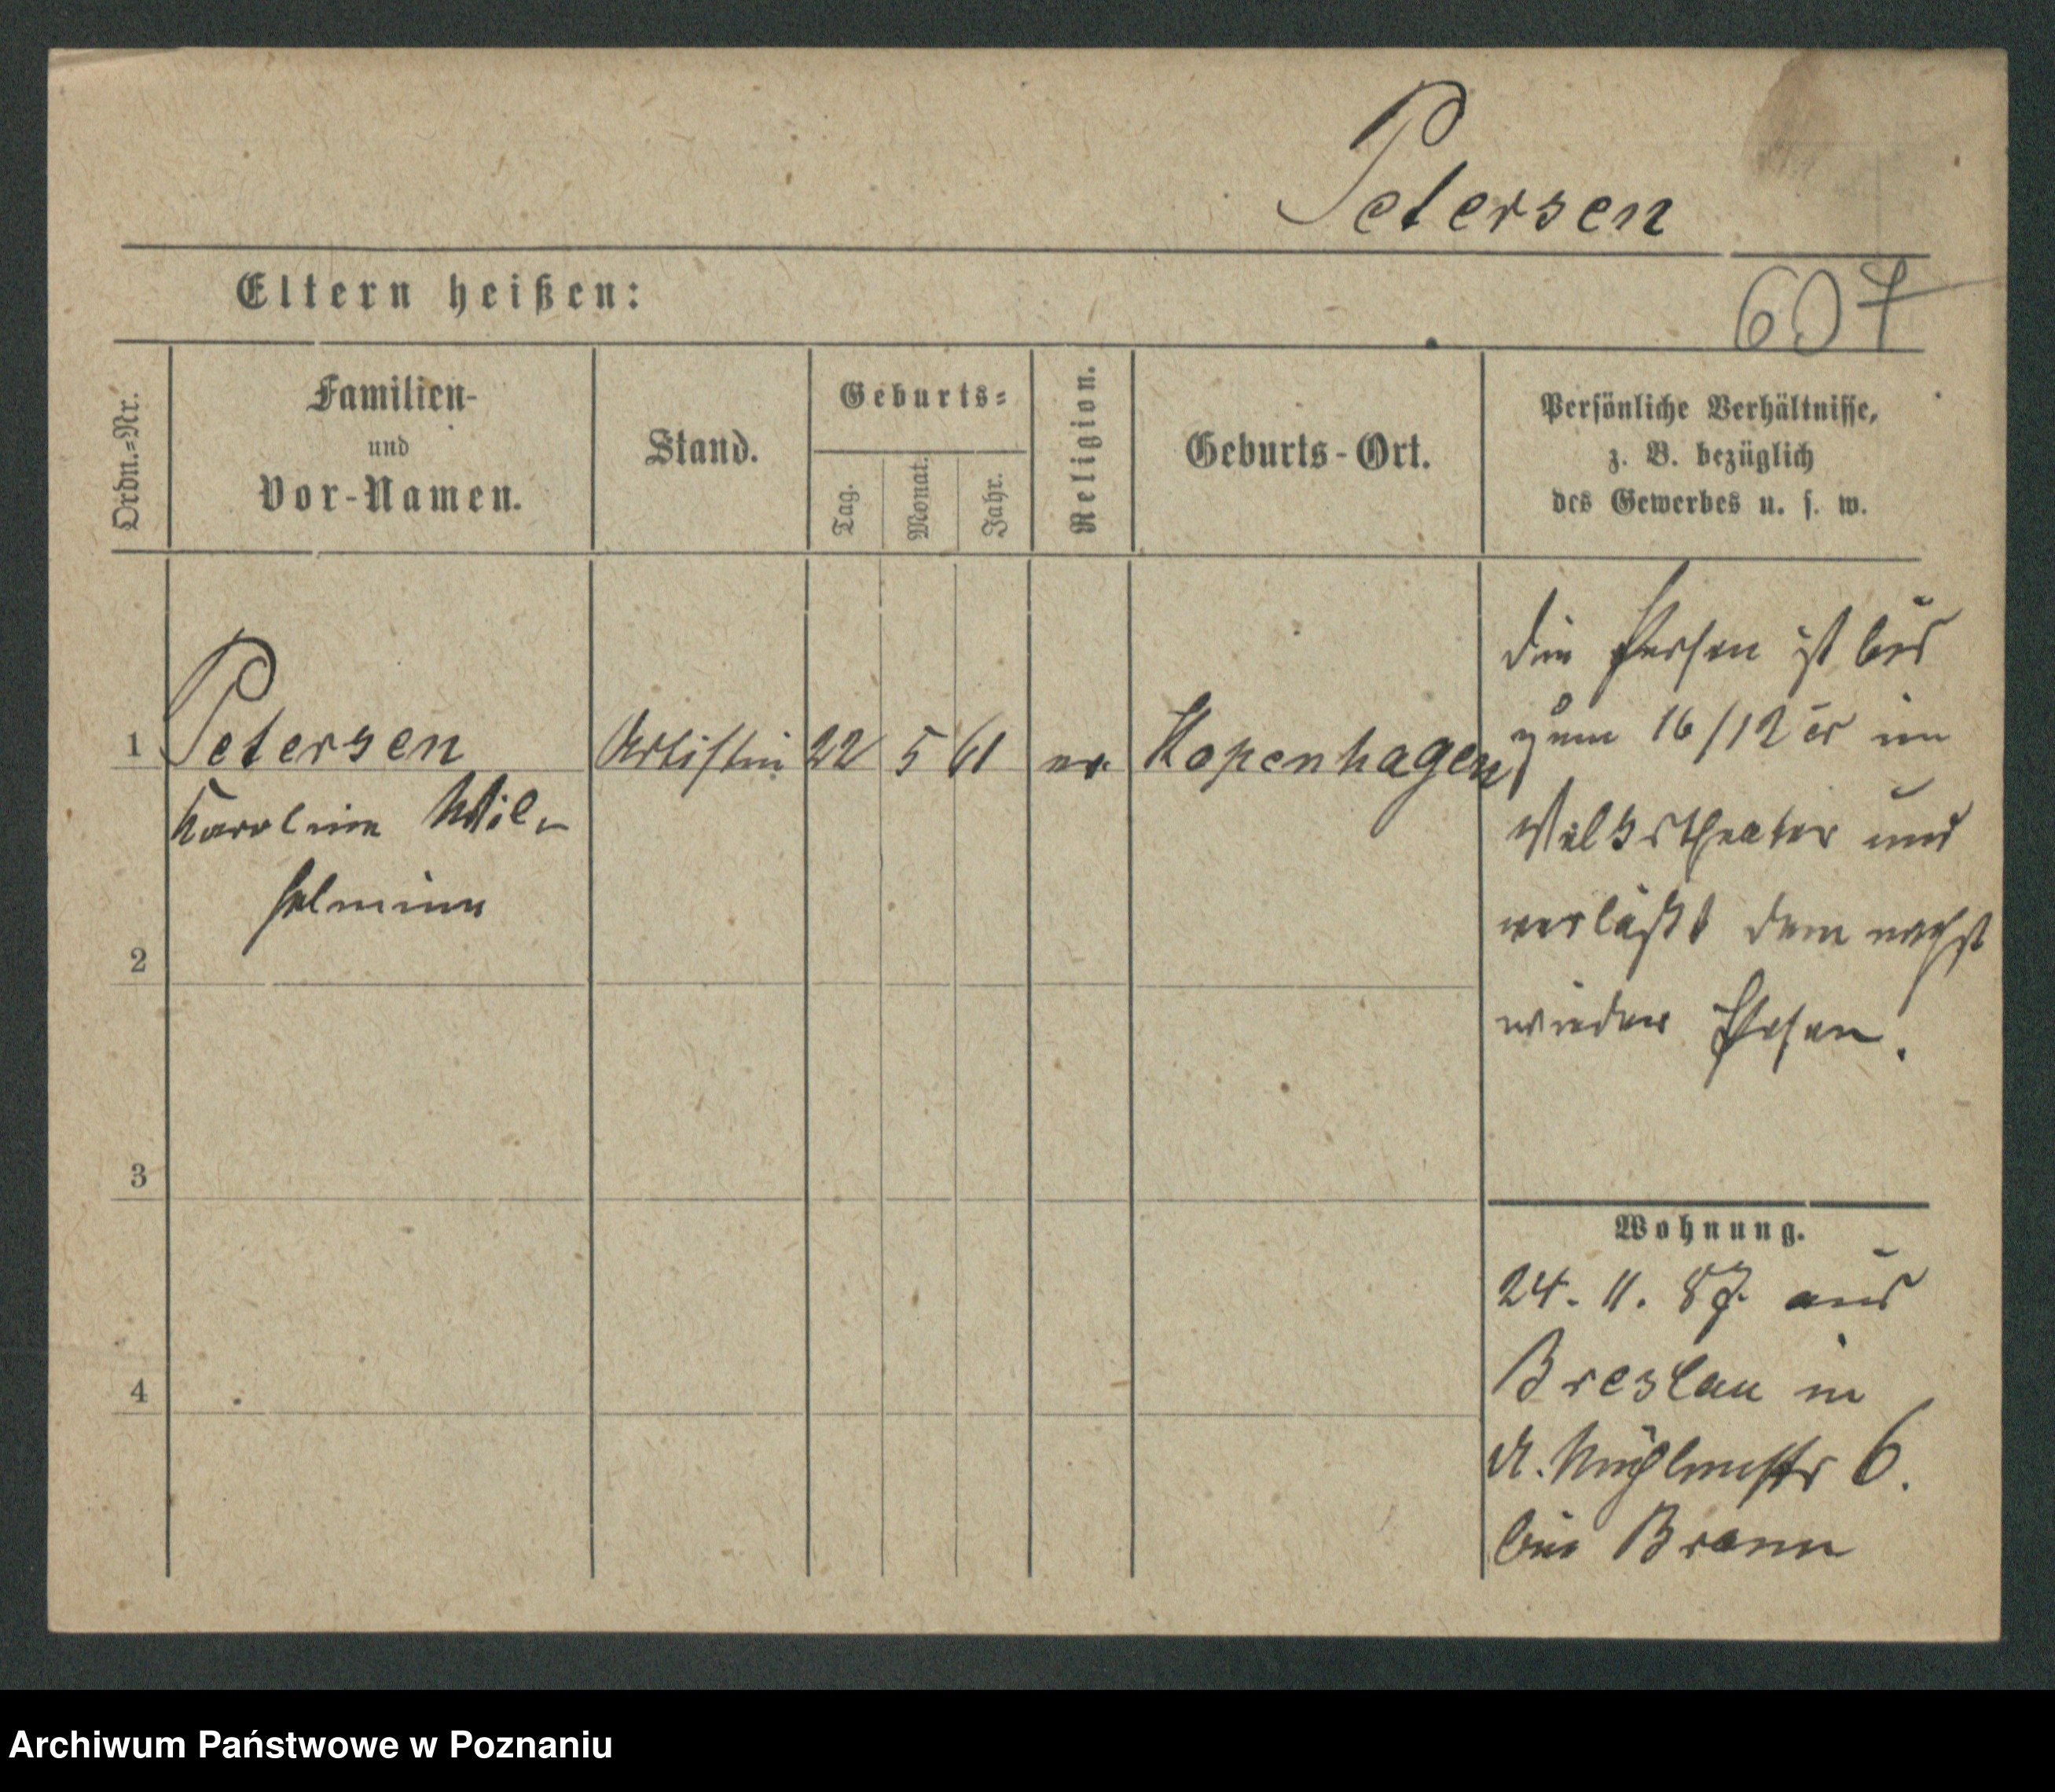 Petersen
Eltern heißen:
607
Ordn.=Nr.
Familien-
und
Vor-Namen.
Stand.
Geburts=
Tag.
Monat.
Jahr.
Religion.
Geburts-Ort.
Persönliche Verhältnisse,
z. B. bezüglich
des Gewerbes u. s. w.
1
Petersen
Artistin
22
5
61
ev.
Kopenhagen
Karoline Wil-
helmine
2
3
4
Die Person ist bis
zum 16/12 cr im
Volkstheater und
verläßt demnächst
wieder Posen.
Wohnung.
24. 11. 87. aus
Breslau in
Mühlenstr 6.
bei Braun
Archiwum Państwowe w Poznaniu